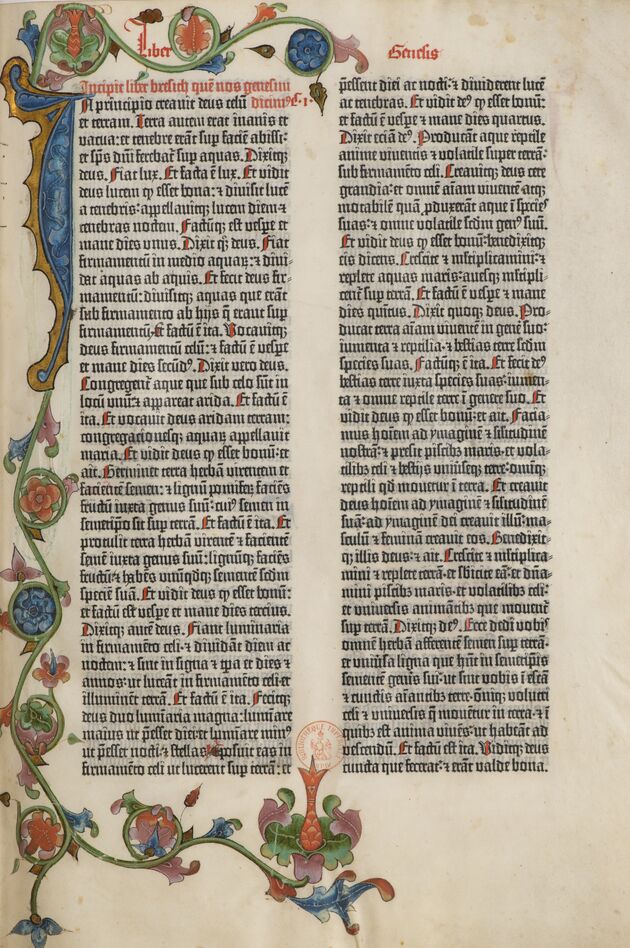 Liber Genesis
Incipit liber bresich quē nos genesim
In principio creavit deus celū dicim⁹ C·I·
et terram. Terra autem erat inanis et
vacua: et tenebre erāt sup faciē abissi:
et sp̄s dn̄i ferebať sup aquas. Dixitqꝫ
deus. Fiat lux. Et facta ē lux. Et vidit
deus lucem ꝙ esset bona: ⁊ divisit lucē
a tenebris· appellavitqꝫ lucem diem ⁊
tenebras noctem. Factūqꝫ est vespe et
mane dies unus. Dixit qꝫ deus. Fiat
firmamentū in medio aquaꝝ: ⁊ divi⸗
dat aquas ab aquis. Et fecit deus fir⸗
mamentū: divisitqꝫ aquas que erāt
sub firmamento ab hijs q̄ erant sup
firmamentū: et factū ē ita. Vocavitqꝫ
deus firmamentū celū: ⁊ factū ē vespe
et mane dies secūd⁹. Dixit vero deus.
Congregent̄ aque que sub celo sūt in
locū unū: ⁊ appareat arida. Et factū ē
ita. Et vocavit deus aridam terram:
congregacionesqꝫ aquaꝝ appellavit
maria. Et vidit deus ꝙ esset bonū: et
ait. Germinet terra herbā virentem et
facientē semen: ⁊ lignū pomifeꝝ faciēs
fructū iuxta genus suū: cui⁹ semen in
semetipō sit sup terrā. Et factū ē ita. Et
protulit terra herbā virentē ⁊ facientē
semē iuxta genus suū: lignūqꝫ faciēs
fructū ⁊ habēs unūqdqꝫ sementē scdm
speciē suā. Et vidit deus ꝙ esset bonū:
et factū est vespe et mane dies tercius.
Dixitqꝫ autē deus. Fiant luminaria
in firmamēto celi· ⁊ dividāt diem ac
noctem: ⁊ sint in signa ⁊ tp̄a et dies ⁊
annos: ut luceāt in firmamēto celi et
illuminēt terrā. Et factū ē ita. Fecitqꝫ
deus duo luminaria magna: luminare
maius ut p̄esset diei et luminare min⁹
ut p̄esset nocti: ⁊ stellas· ⁊ posuit eas in
firmamēto celi ut lucerent sup terrā: et
p̄essent diei ac nocti: ⁊ dividerent lucē
ac tenebras. Et vidit de⁹ ꝙ esset bonū:
et factū ē vespe ⁊ mane dies quartus.
Dixit eciā de⁹. Producant aque reptile
anime viventis ⁊ volatile super terrā:
sub firmamēto celi. Creavitqꝫ deus cete
grandia· et omnē aīam viventē atqꝫ
motabilē quā pduxerāt aque ī species
suas: ⁊ omne volatile scdm gen⁹ suū.
Et vidit deus ꝙ esset bonū: benedixitqꝫ
eis dicens. Crescite ⁊ mltiplicamini· ⁊
replete aquas maris· avesqꝫ mltipli⸗
cent̄ sup terrā. Et factū ē vespe ⁊ mane
dies quītus. Dixit quoqꝫ deus. Pro⸗
ducat terra aīam viventē in genē suo:
iumenta ⁊ reptilia· ⁊ bestias terre scdm
species suas. Factūqꝫ ē ita. Et fecit de⁹
bestias terre iuxta species suas: iumen⸗
ta ⁊ omne reptile terre ī genere suo. Et
vidit deus ꝙ esset bonū: et ait. Facia⸗
mus hoīem ad ymaginē ⁊ silitudinē
nostrā· ⁊ presit piscibꝫ maris· et vola⸗
tilibꝫ celi ⁊ bestijs universeqꝫ terre: omīqꝫ
reptili qd movet̄ ī terra. Et creavit
deus hoīem ad ymaginē ⁊ silitudinē
suā: ad ymaginē dei creavit illū: ma⸗
sculū ⁊ feminā creavit eos. Benedixit⸗
qꝫ illis deus· ⁊ ait. Crescite ⁊ mltiplica⸗
mini ⁊ replete terrā· et sbicite eā: et dn̄a⸗
mini piscibꝫ maris· et volatilibꝫ celi:
et universis animātibꝫ que movent̄
sup terrā. Dixitqꝫ de⁹. Ecce dedi vobis
omnē herbam afferentē semen sup terrā·
et universa ligna que hn̄t in semetipīs
sementē genis sui: ut sint vobis ī escā
⁊ cunctis aīantibꝫ terre· omīqꝫ volucri
celi ⁊ universis q̄ movent̄ in terra· ⁊ ī
quibꝫ est anima vivēs: ut habeāt ad
vescendū. Et factū est ita. Viditqꝫ deus
cuncta que fecerat: ⁊ erāt valde bona.